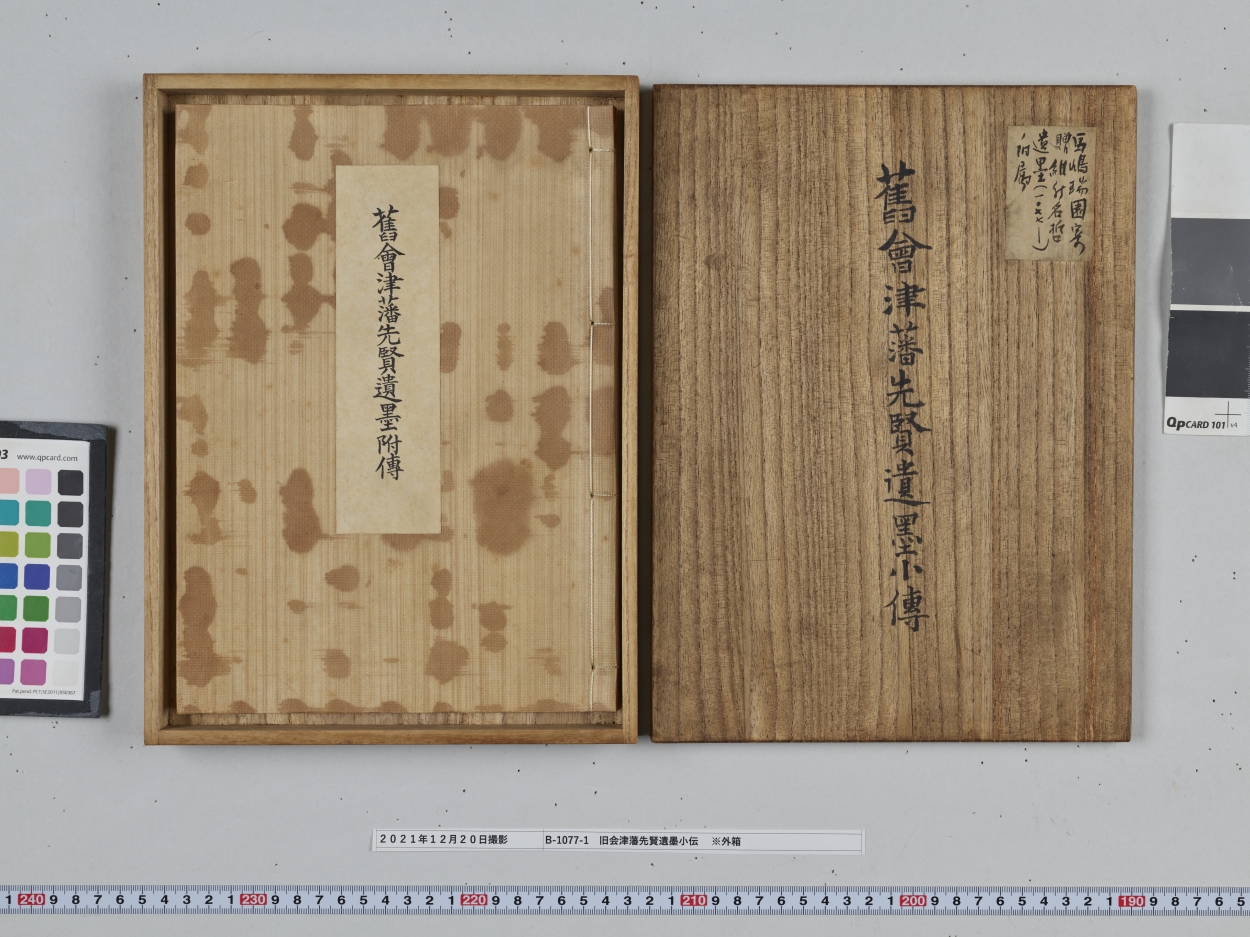 舊會津藩先賢遺墨附傳
舊會津藩先賢遺墨小傳
馬嶋瑞園寄
贈維新名哲
遺墨(一〇七七ー)
附属
2021年12月20日撮影 B-1077-1 旧会津藩先賢遺墨小伝 ※外箱
QPCARD 101 v4
03 www.qpcard.com
1 240 9 8 7 6 5 4 3 2 1 230 9 8 7 6 5 4 3 2 1 220 9 8 7 6 5 4 3 2 1 210 9 8 7 6 5 4 3 2 1 200 9 8 7 6 5 4 3 2 1 190 9 8 7 6 5